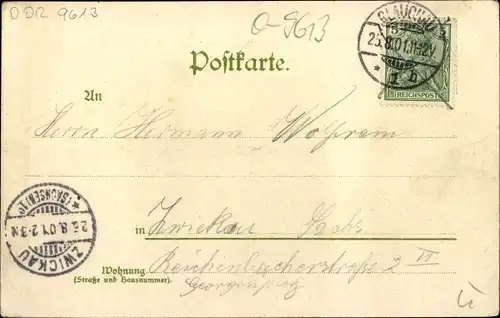 DDR 9613
O-9613
GLAUCHAU
25.8.01.11-12V.
* 1 b
REICHSPOST
5
Postkarte.
An
Herrn Hermann Wolfram
in Zwickau Sachs.
Wohnung Reichenbacherstraße 2 II
(Straße und Hausnummer).
ZWICKAU
25.8.01.2-3N.
*(SACHSEN)1*